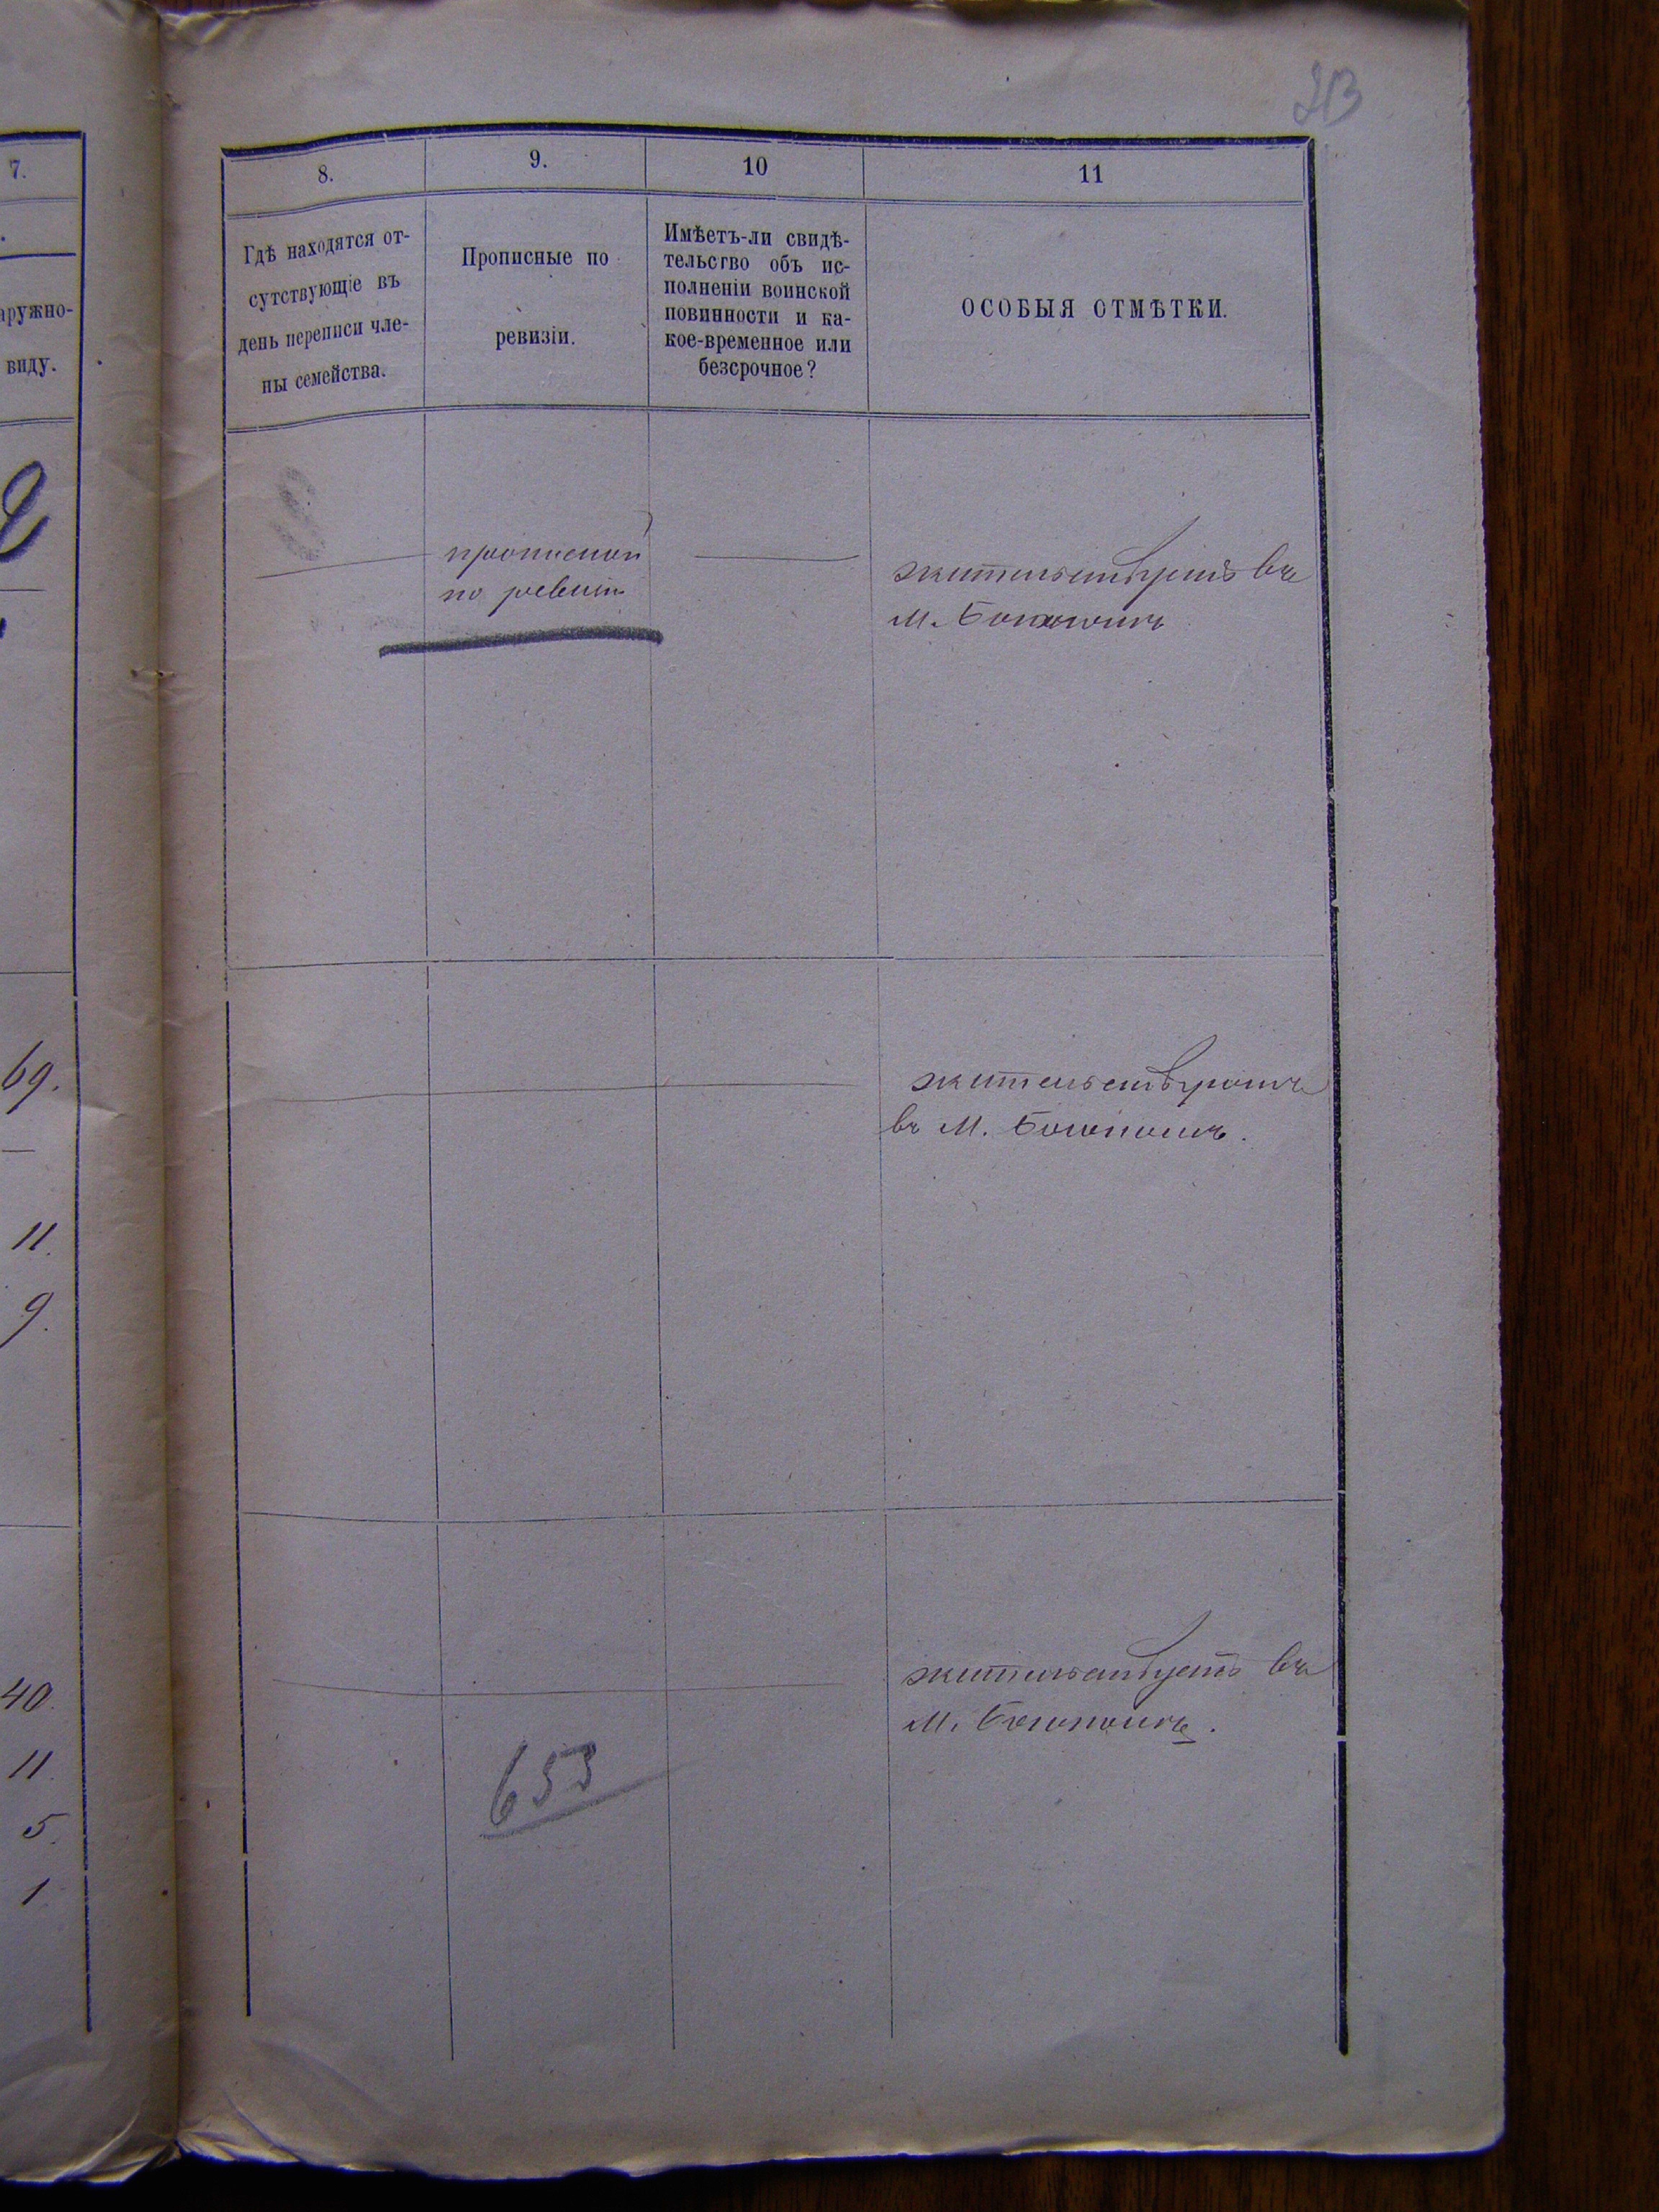 213
7.
8.
9.
10
11
аружно-
виду.
Гдѣ находятся от-
сутствующіе въ
день переписи чле-
ны семейства.
Прописные по
ревизіи.
Имѣетъ-ли свидѣ-
тельство объ ис-
полненіи воинской
повинности и ка-
кое-временное или
безсрочное?
ОСОБЫЯ ОТМѢТКИ.
2
прописной
по ревизіи
жительствуетъ въ
м.
69.
11.
9.
жительствуютъ
въ м.
40.
11.
5.
1.
жительствуетъ въ
м.
653